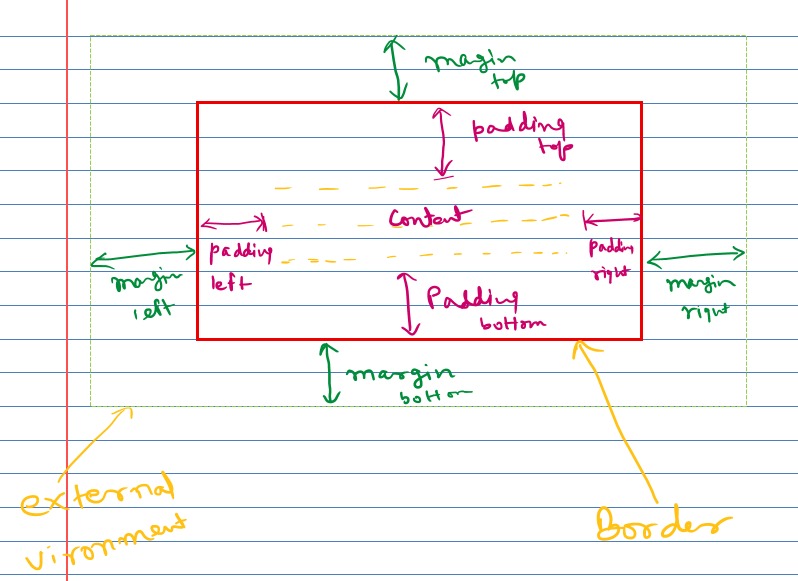 margin
top
padding
top
Content
padding
left
padding
right
margin
left
margin
right
Padding
bottom
margin
bottom
external
vironment
Border